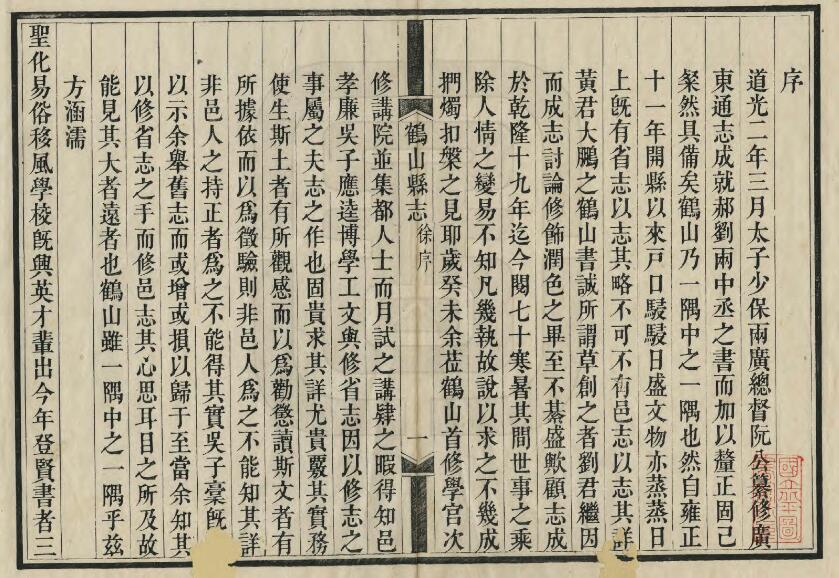 序
道光二年三月太子少保兩廣總督阮公纂修廣
東通志成就郝劉兩中丞之書而加以釐正固已
粲然具備矣鶴山乃一隅中之一隅也然自雍正
十一年開縣以來戸口駸駸日盛文物亦蒸蒸日
上旣有省志以志其略不可不有邑志以志其詳
黃君大鵬之鶴山書誠所謂草創之者劉君繼因
而成志討論修飾潤色之畢至不綦盛歟顧志成
於乾隆十九年迄今閱七十寒暑其間世事之乘
除人情之變易不知凡幾執故說以求之不幾成
捫燭扣槃之見耶歲癸未余莅鶴山首修學官次
鶴山縣志
徐序
一
修講院並集都人士而月試之講肄之暇得知邑
孝廉吳子應逵博學工文與修省志因以修志之
事屬之夫志之作也固貴求其詳尤貴覈其實務
使生斯土者有所觀感而以爲勸懲讀斯文者有
所據依而以爲徵驗則非邑人爲之不能知其詳
非邑人之持正者爲之不能得其實吳子稾旣
以示余舉舊志而或增或損以歸于至當余知其
以修省志之手而修邑志其心思耳目之所及故
能見其大者遠者也鶴山雖一隅中之一隅乎茲
方涵濡
聖化易俗移風學校旣興英才輩出今年登賢書者三